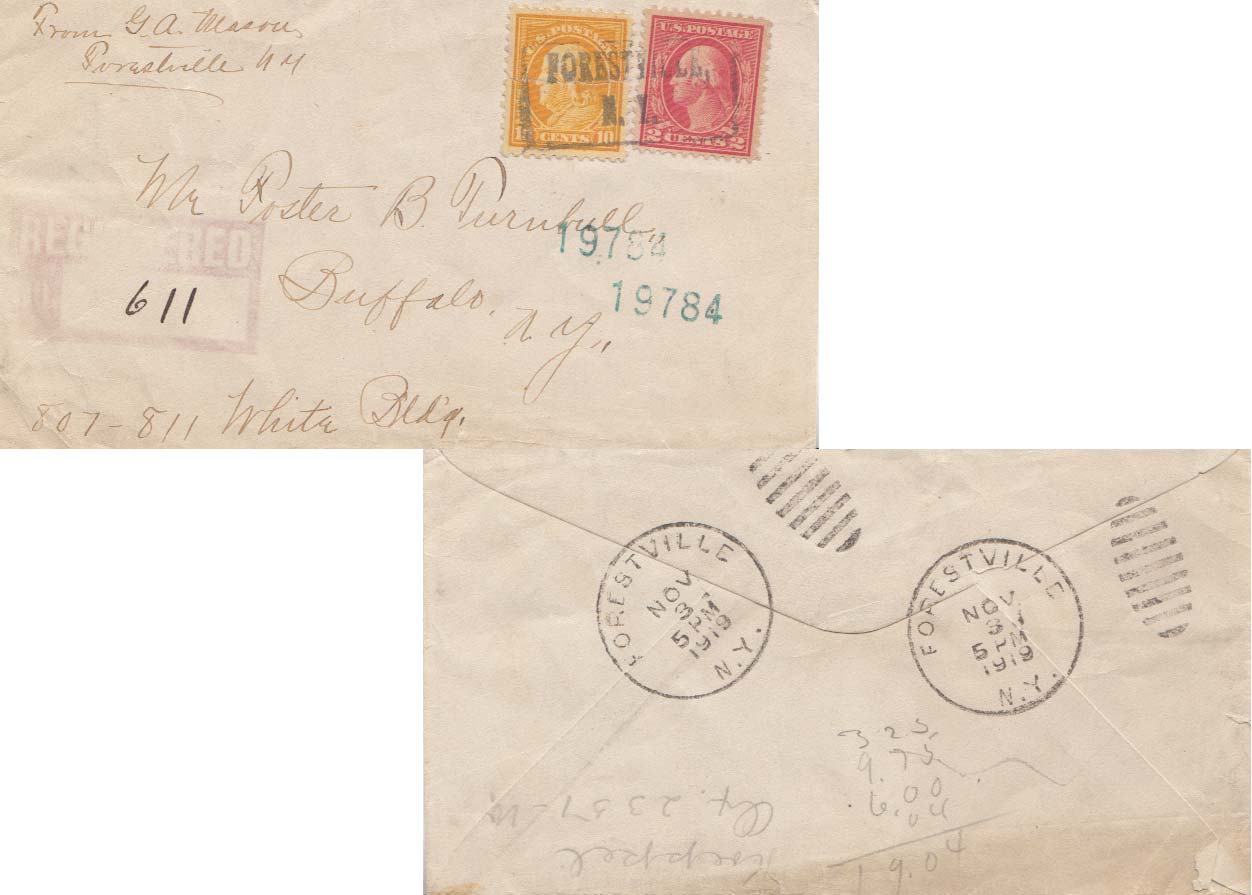 From G. A. Mason
Forestville NY
U.S. POSTAGE
CENTS 10
U.S. POSTAGE
2 CENTS 2
FORESTVILLE,
N. Y.
Mr Foster B. Turnbull,
19784
REGISTERED
611
Buffalo,
19784
N. Y.,
807-811 White Bldg.
FORESTVILLE
NOV
3
5 PM
1919
N.Y.
FORESTVILLE
NOV
3
5 PM
1919
N.Y.
3 25
9.75
6.00
19.0